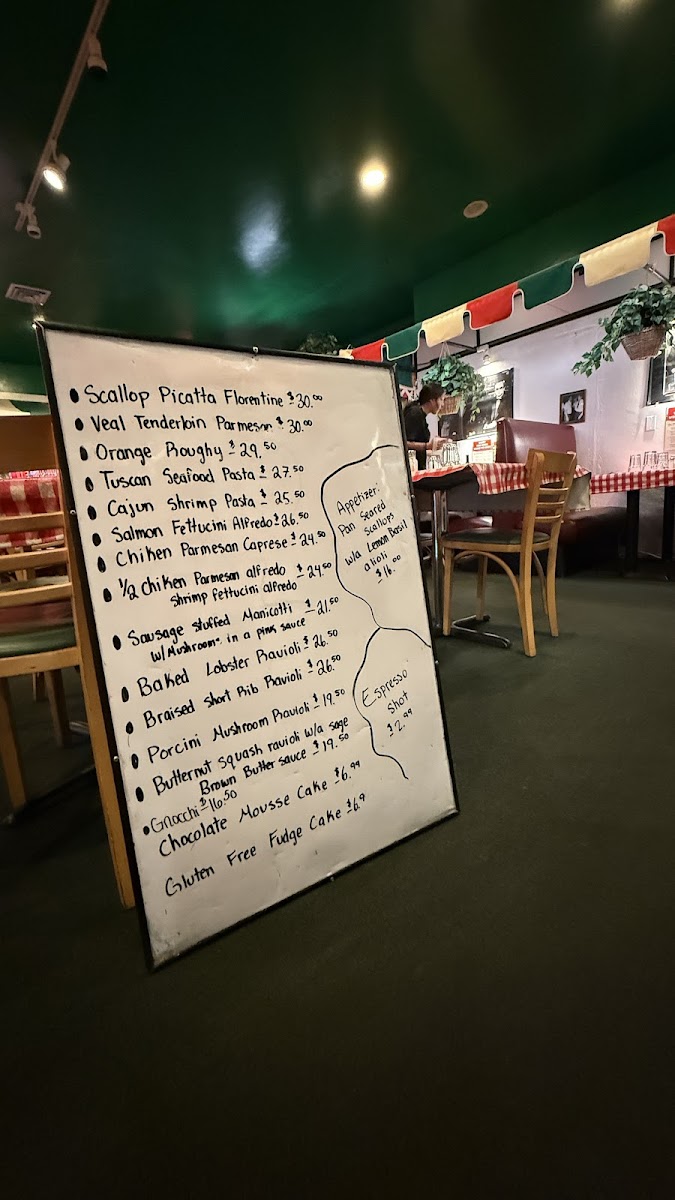 • Scallop Picatta Florentine $30.00
• Veal Tenderloin Parmesan $30.00
• Orange Roughy $29.50
• Tuscan Seafood Pasta $27.50
• Cajun Shrimp Pasta $25.50
• Salmon Fettucini Alfredo $26.50
• Chiken Parmesan Caprese $24.50
• 1/2 Chiken Parmesan alfredo $24.50
Shrimp fettucini alfredo
• Sausage stuffed Manicotti $21.50
w/Mushrooms in a pink sauce
• Baked Lobster Ravioli $26.50
• Braised Short Rib Ravioli $26.50
• Porcini Mushroom Ravioli $19.50
• Butternut squash ravioli w/a sage
Brown Butter sauce $19.50
• Gnocchi $16.50
Chocolate Mousse Cake $6.99
Gluten Free Fudge Cake $6.9
Appetizer:
Pan Seared
Scallops
w/a Lemon Basil
alioli
$16.00
Espresso
Shot
$2.99